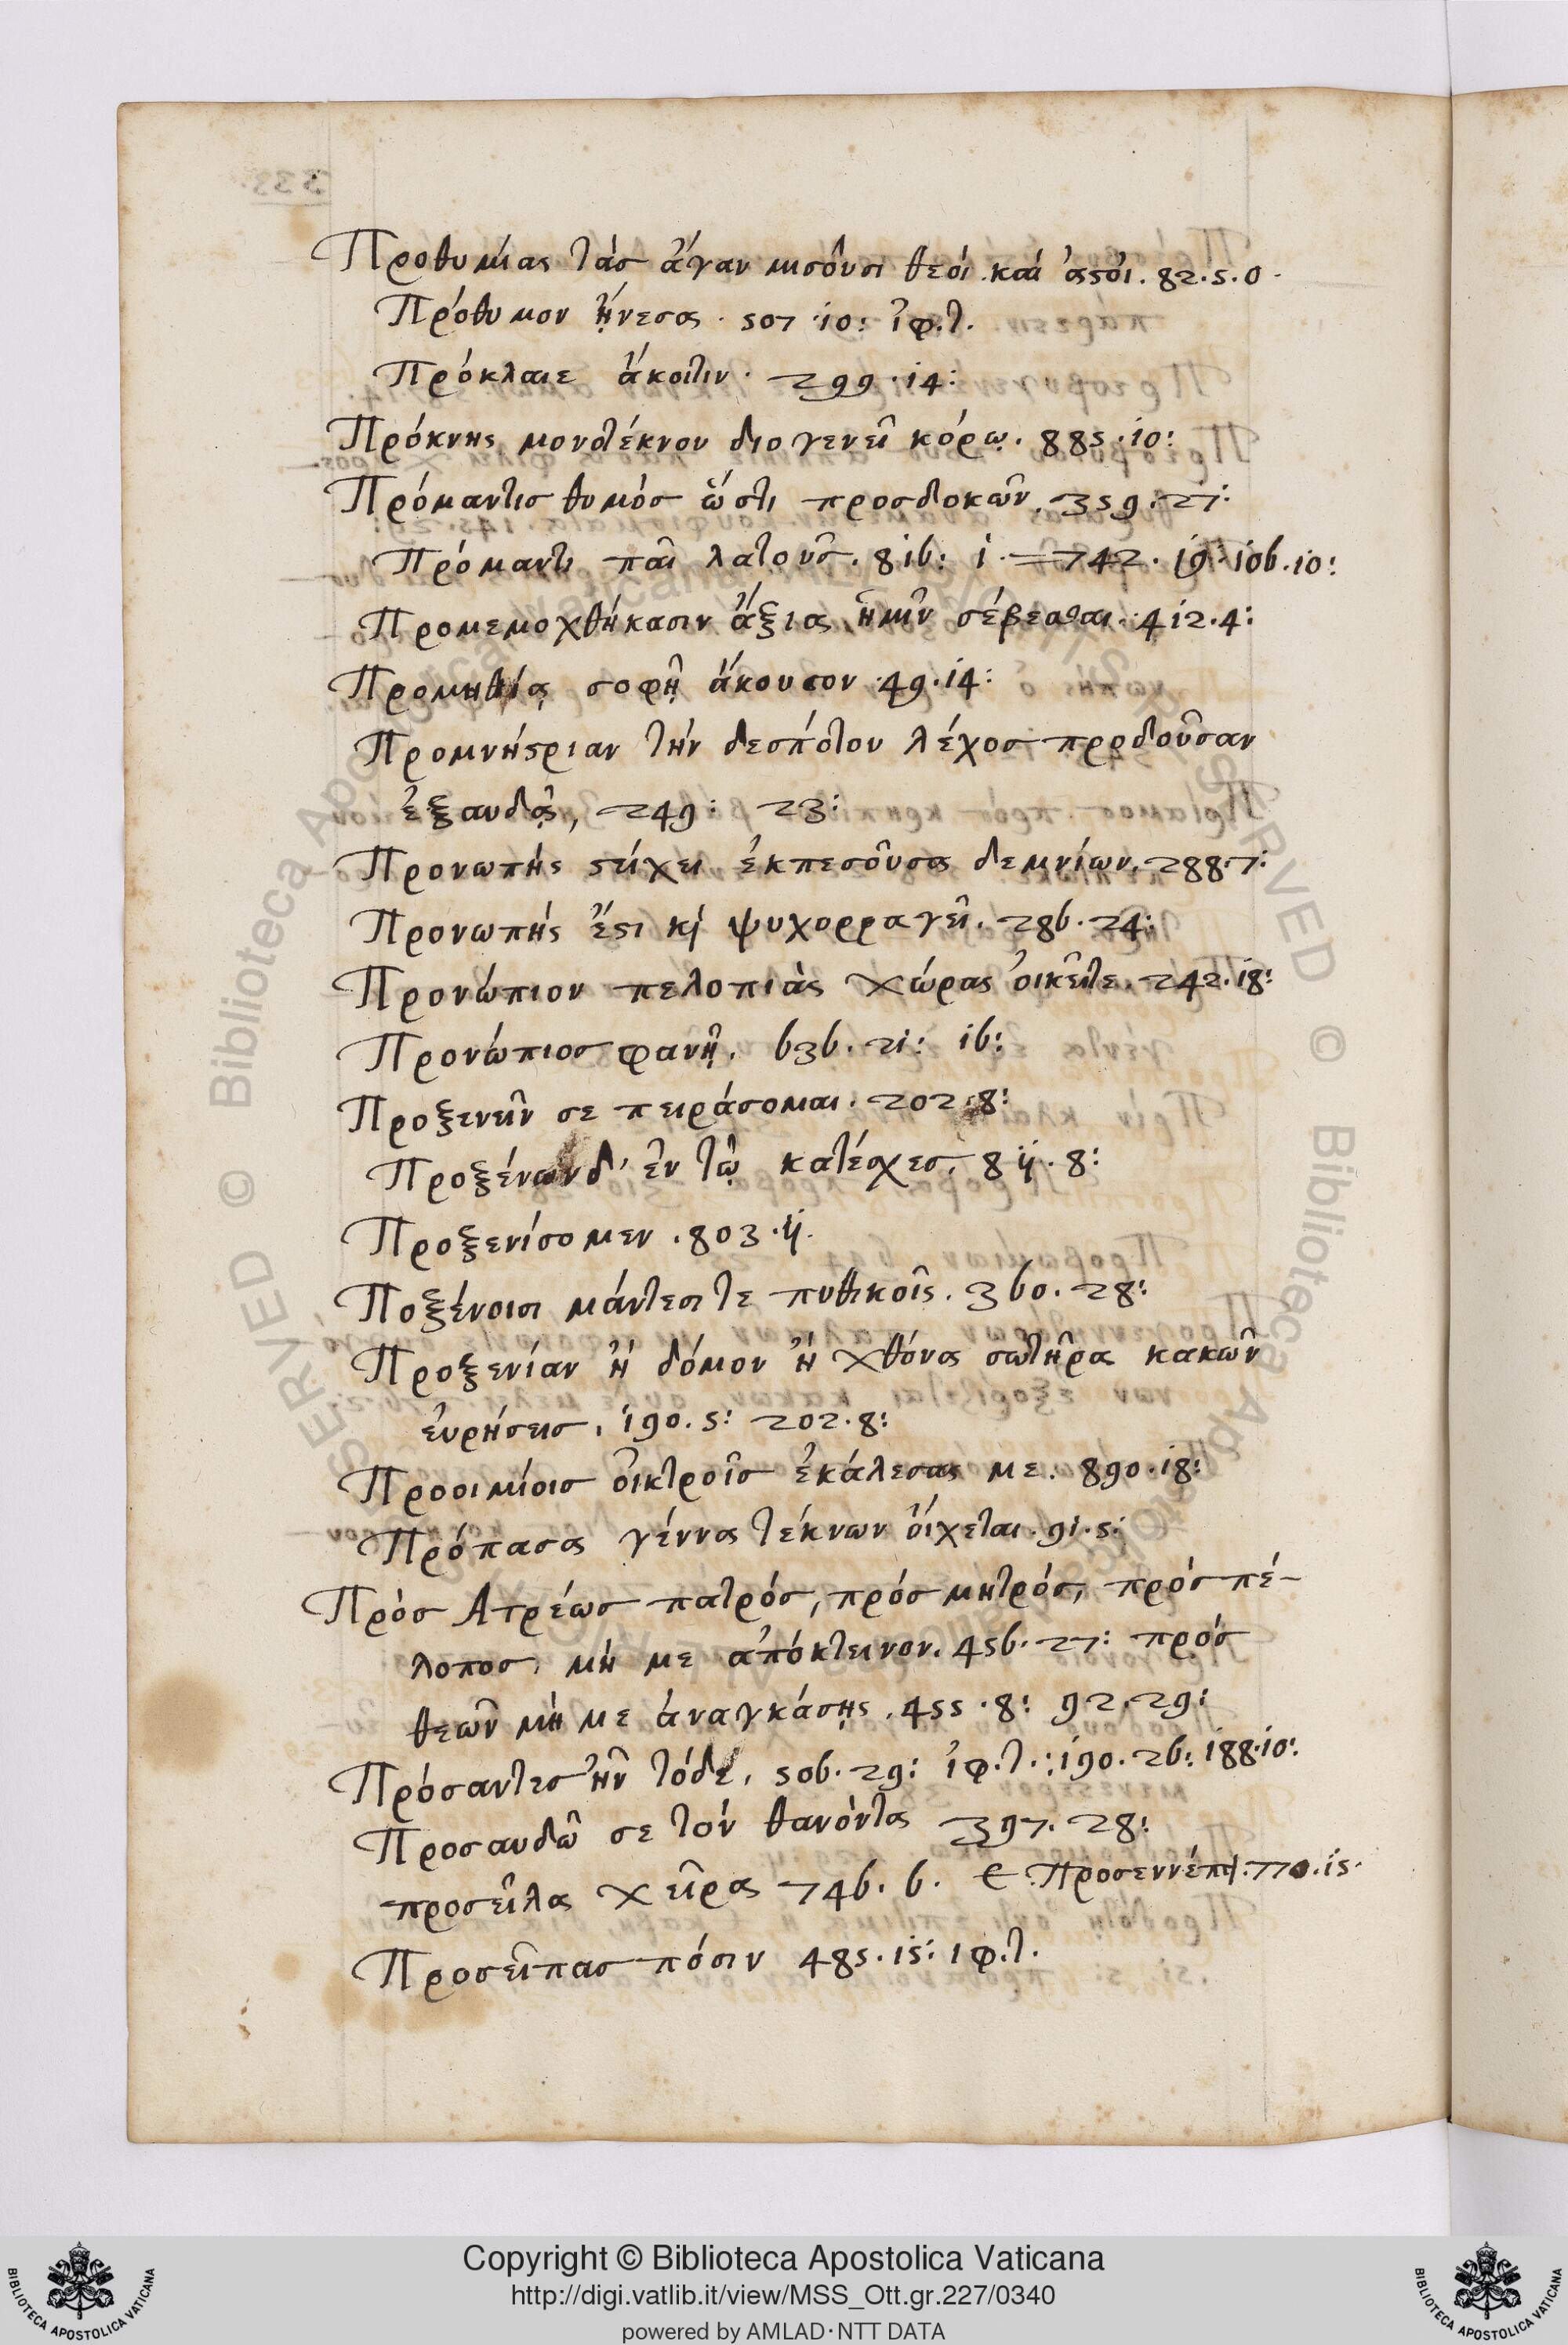 Προθυμίας τάσ ἄγαν μισοῦσι θεόι καί ἀςόι. 82.5.0.
Πρόθυμον ᾔνεσα. 507.10: ἰφ.τ.
Πρόκλαιε ἄκοιτιν. 299.14:
Πρόκνης μονοτέκνου διογενεῖ κόρῳ. 885.10:
Πρόμαντισ θυμόσ ὥστι προσδοκῶν. 359.27:
Πρόμαντι παῖ λατοῦσ. 816: 1. 742. 19: 106.10:
Προμεμοχθήκασιν ἄξια, ἡμῖν σέβεσθαι. 412.4:
Προμηθίᾳ σοφῇ ἄκουσον 49.14:
Προμνήςριαν τήν δεσπότου λέχοσ προδοῦσαν
ἐξαυδᾷς, 249: 23:
Προνωπής ςείχει ἐκπεσοῦσα δεμνίων. 288.7:
Προνωπής ἔςι κὶ ψυχορραγεῖ. 286.24:
Προνώπιον πελοπιὰς χώρας ὀικεῖτε. 242.18:
Προνώπιοσ φανῇ. 636.21: 16:
Προξενεῖν σε πειράσομαι. 202.8:
Προξένων δ' ἐν τῷ κατέσχεσ. 811.8:
Προξενίσομεν. 803.11.
Ποξένοισι μάντεσι τε πυθικοῖς. 360.28:
Προξενίαν ἤ δόμον ἤ χθόνα σωτῆρα κακῶν
ἑυρήσεισ. 190.5: 202.8:
Προοιμίοισ ὀικτροῖσ ἐκάλεσας με. 890.18:
Πρόπασα γέννα τέκνων ὄιχεται. 91.5:
Πρὸσ Ατρέωσ πατρόσ, πρόσ μητρόσ, πρόσ πέ-
λοποσ, μή με ἀπόκτεινον. 456.27: πρόσ
θεῶν μή με ἀναγκάσῃς. 455.8: 92.29:
Πρόσαντεσ ἦν τόδε. 506.29: ἰφ.τ.: 190.26: 188.10:
Προσαυδῶ σε τόν θανόντα 397.28:
προσεῖλα χεῖρα 746.6. Προσεννέπει. 770.15.
Προσεῖπασ πόσιν 485.15: ιφ.τ.
Copyright © Biblioteca Apostolica Vaticana
http://digi.vatlib.it/view/MSS_Ott.gr.227/0340
powered by AMLAD·NTT DATA
BIBLIOTECA APOSTOLICA VATICANA
BIBLIOTECA APOSTOLICA VATICANA